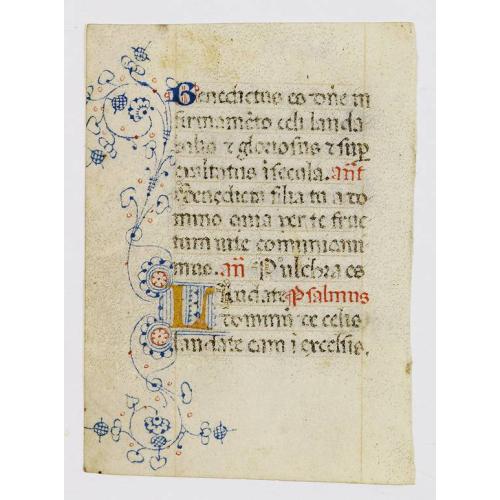 Benedictus es dn̄e in
firmamēto celi lauda
bilis ⁊ gloriosus ⁊ sup
exaltatus ī secula. an̄t
Benedicta filia tu a do
mino quia per te fruc
tum vite comunicaui
mus. an̄ Pulchra es
Laudate Psalmus
dominū de celis
laudate eum ī excelsis.